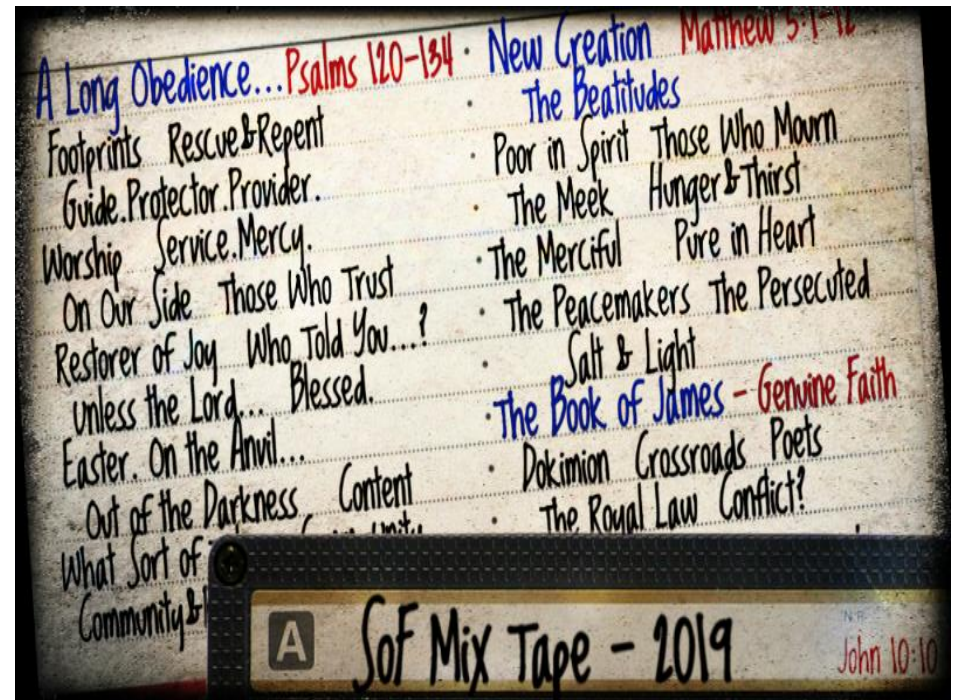 A Long Obedience... Psalms 120-134
Footprints Rescue & Repent
Guide. Protector. Provider.
Worship Service. Mercy.
On Our Side Those Who Trust
Restorer of Joy Who Told You...?
Unless the Lord... Blessed.
Easter. On the Anvil...
Out of the Darkness Content
What Sort of
Community &
New Creation Matthew 5:1-12
The Beatitudes
Poor in Spirit Those Who Mourn
The Meek Hunger & Thirst
The Merciful Pure in Heart
The Peacemakers The Persecuted
Salt & Light
The Book of James - Genuine Faith
Dokimion Crossroads Poets
The Royal Law Conflict?
A SoF Mix Tape - 2019
N.R.
John 10:10